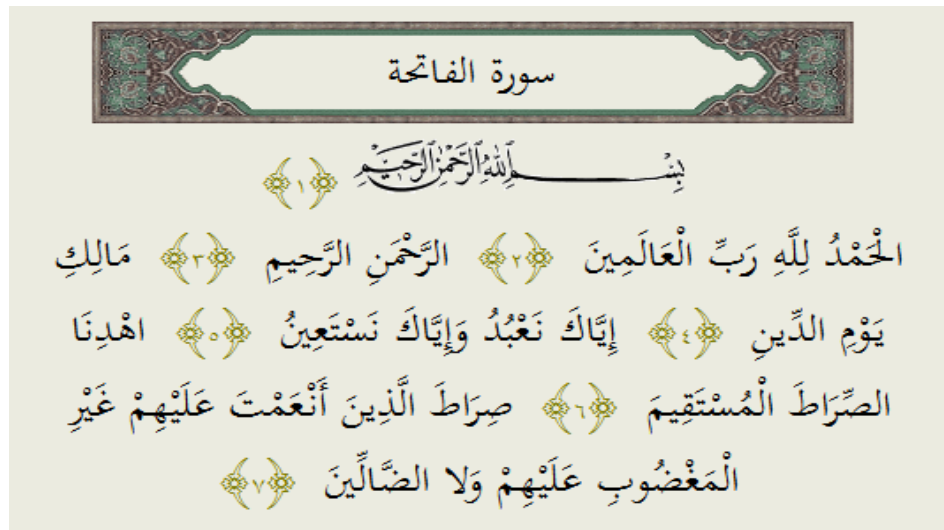 سورة الفاتحة
بِسْمِ ٱللَّهِ ٱلرَّحْمَٰنِ ٱلرَّحِيمِ ﴿١﴾
الْحَمْدُ لِلَّهِ رَبِّ الْعَالَمِينَ ﴿٢﴾ الرَّحْمَنِ الرَّحِيمِ ﴿٣﴾ مَالِكِ
يَوْمِ الدِّينِ ﴿٤﴾ إِيَّاكَ نَعْبُدُ وَإِيَّاكَ نَسْتَعِينُ ﴿٥﴾ اهْدِنَا
الصِّرَاطَ الْمُسْتَقِيمَ ﴿٦﴾ صِرَاطَ الَّذِينَ أَنْعَمْتَ عَلَيْهِمْ غَيْرِ
الْمَغْضُوبِ عَلَيْهِمْ وَلا الضَّالِّينَ ﴿٧﴾